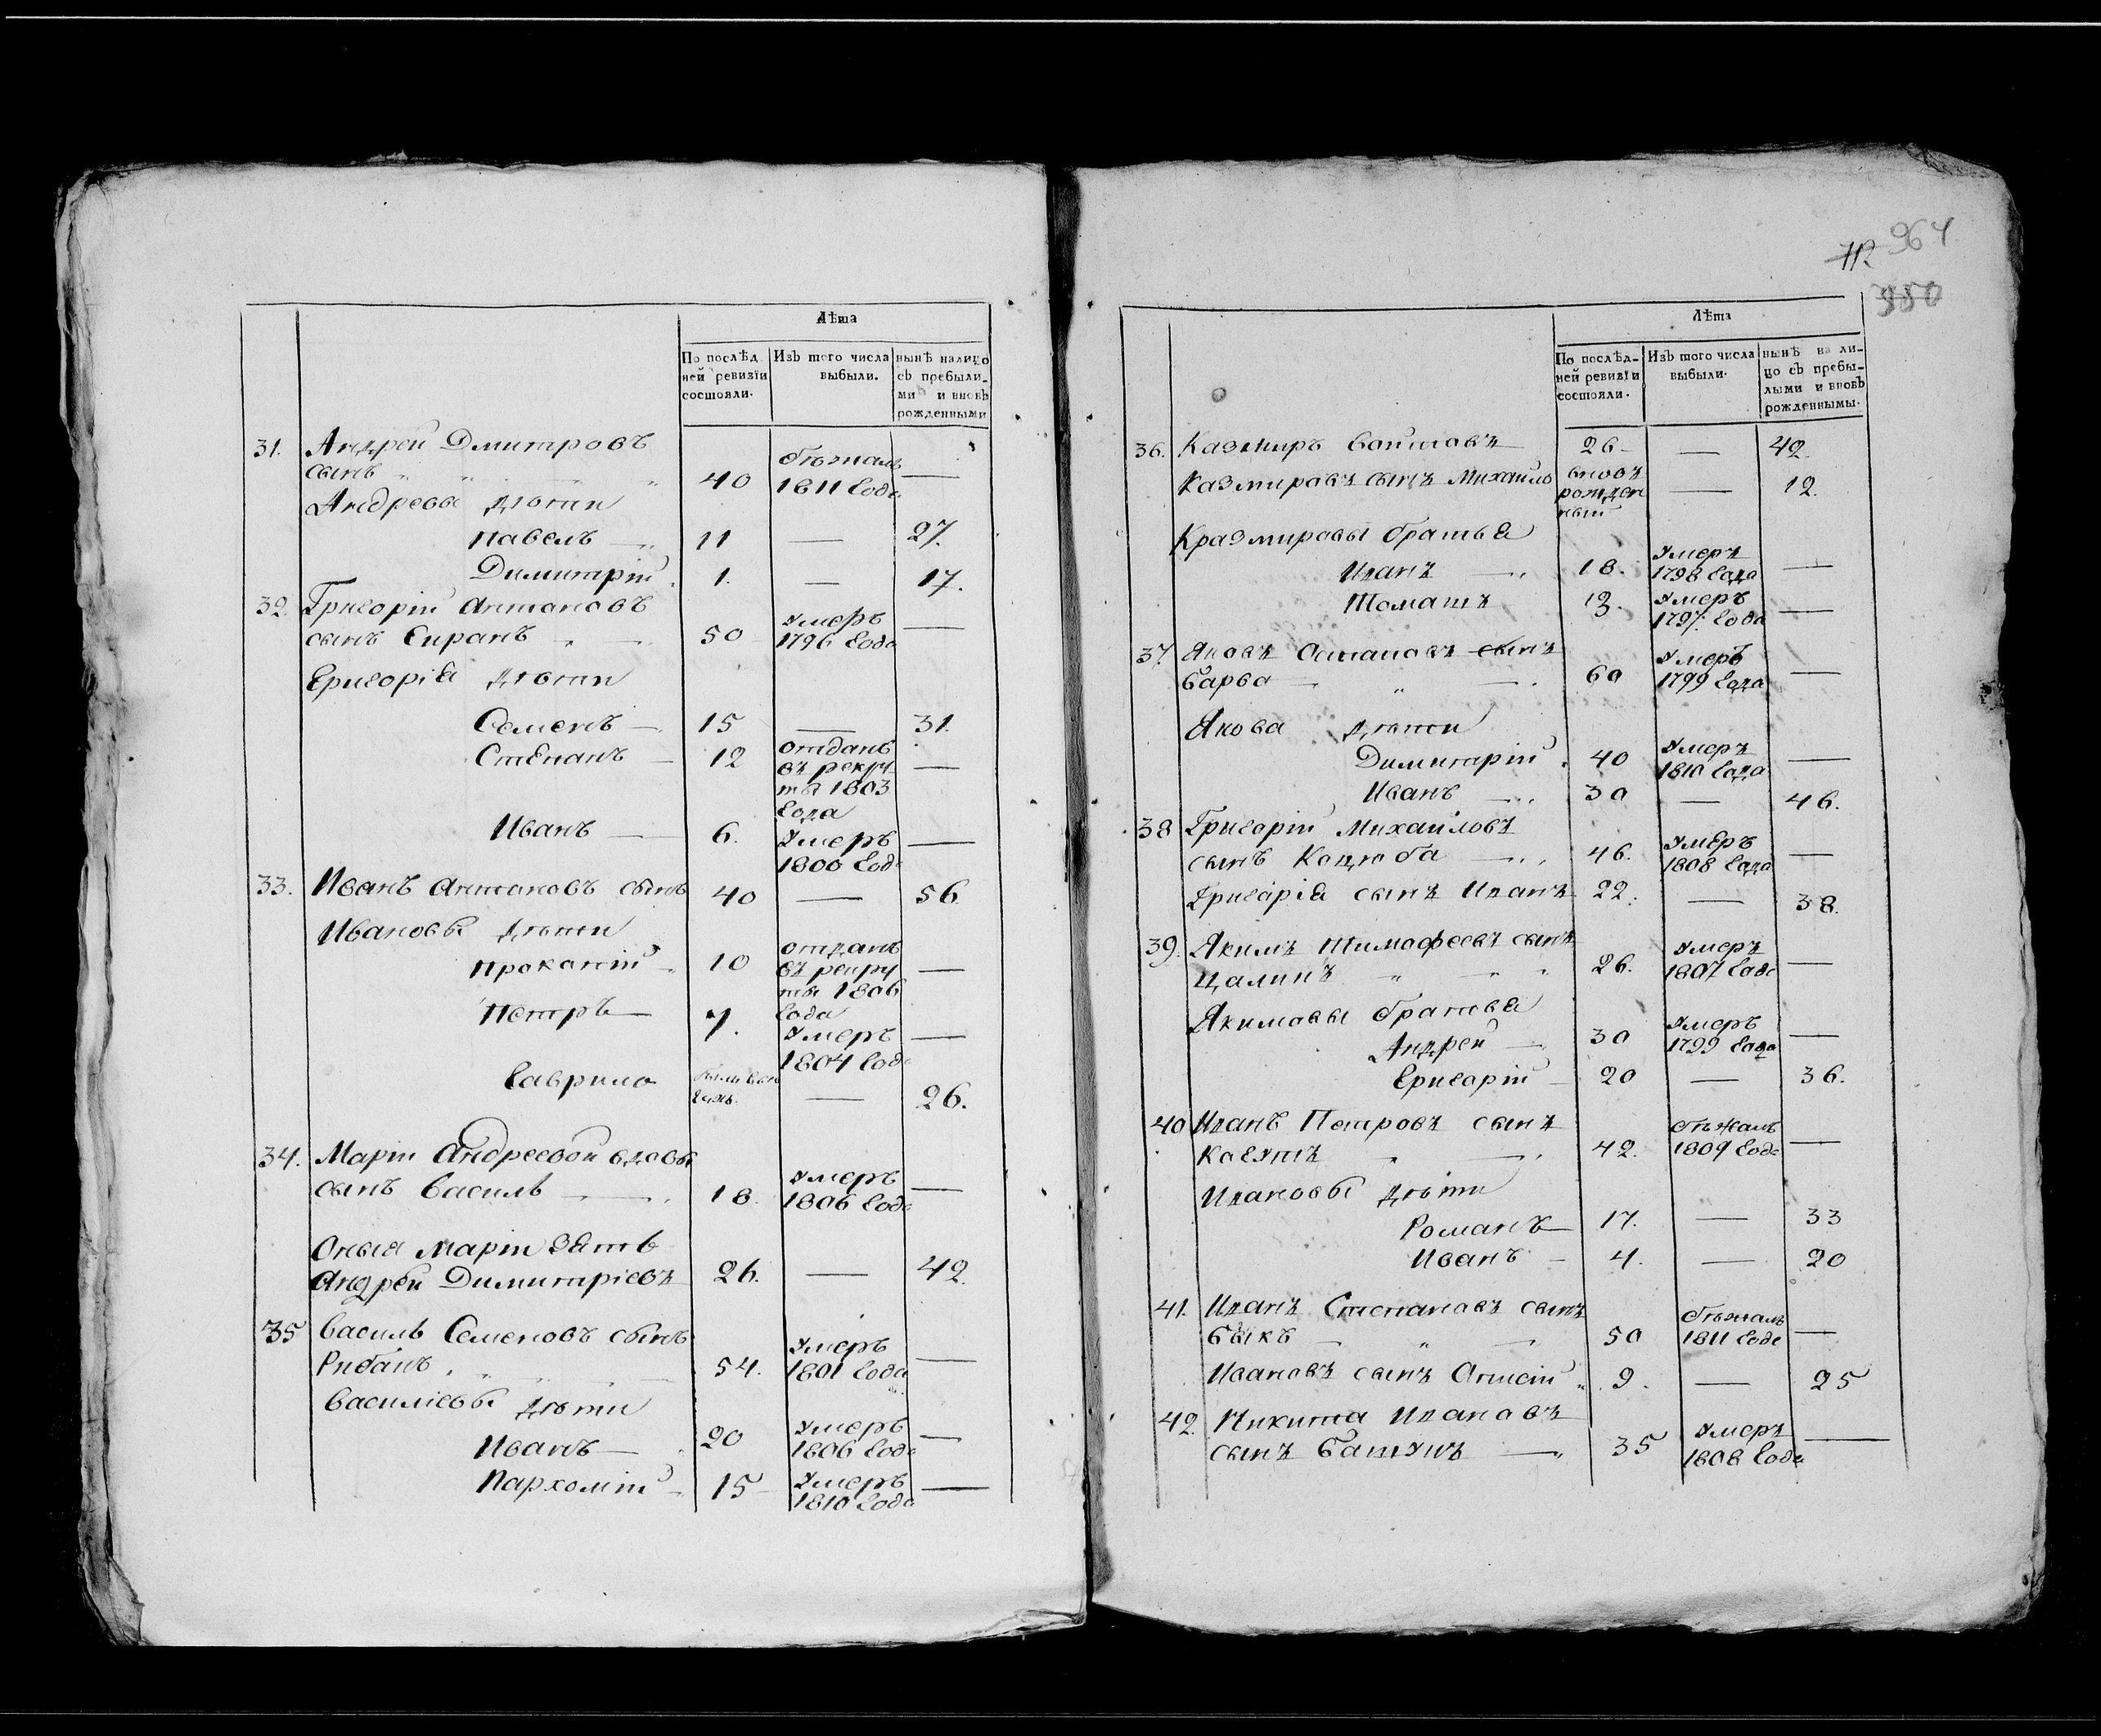 Лѣта
По послѣд. Изъ того числа нынѣ налицо
ней ревизїи выбыли. съ прибыли-
состояли. ми и вновь
рожденными
31. Андрей Дмитровъ бѣжалъ
сынъ 40 1811 Года —
Андреевы дѣти
Павелъ 11 — 27.
Димитрій 1. — 17.
32. Григорій Антоновъ Умеръ
сынъ 50 1796 Года —
Григорія дѣти
Семенъ 15 — 31.
Степанъ 12 отданъ —
въ рекру
ты 1803
Года
Иванъ 6. Умеръ —
1800 Года
33. Иванъ Антоновъ сынъ 40 — 56.
Ивановы дѣти
Прокопій 10 отданъ —
въ рекру
ты 1806
Года
Петръ 7. Умеръ —
1804 Года
Гаврило — 26.
34. Маріи Андреевой вдовы
сынъ Василь 18. Умеръ —
1806 Года
Оныя Маріи Зять
Андрей Димитріевъ 26. — 42.
35 Василь Семеновъ сынъ Умеръ
Рибанъ 54. 1801 Года —
Василіевы дѣти
Иванъ 20 Умеръ —
1806 Года
Пархомій 15 Умеръ —
1810 Года
112 964
950
Лѣта
По послѣд- Изъ того числа нынѣ на ли-
ней ревизїи выбыли. цо съ прибы-
состояли. лыми и вновь
рожденнымы.
36. Казмиръ Войтовъ 26 — 42.
Казмировъ сынъ Михайло вновь — 12.
рожден
ный
Казмировы братья
Иванъ 18. Умеръ —
1798 Года
Томашъ 13. Умеръ —
1797. Года
37 Яковъ Остаповъ сынъ Умеръ
Барва 60 1799 Года —
Якова дѣти
Димитрій 40 Умеръ —
1810 Года
Иванъ 30 — 46.
38 Григорій Михайловъ Умеръ
сынъ Коцюба 46. 1808 Года —
Григорія сынъ Иванъ 22. — 38.
39. Якимъ Тимофеевъ сынъ Умеръ
Цалинъ 26. 1807 Года —
Якимовы братья
Андрей 30 Умеръ —
1799 Года
Григорій 20 — 36.
40 Иванъ Петровъ сынъ бѣжалъ
42. 1809 Года —
Ивановы дѣти
Романъ 17. — 33
Иванъ 4. — 20
41. Иванъ Степановъ сынъ бѣжалъ
Быкъ 50 1811 Года —
Ивановъ сынъ 9. — 25
42. Никита Ивановъ Умеръ
сынъ 35 1808 Года —